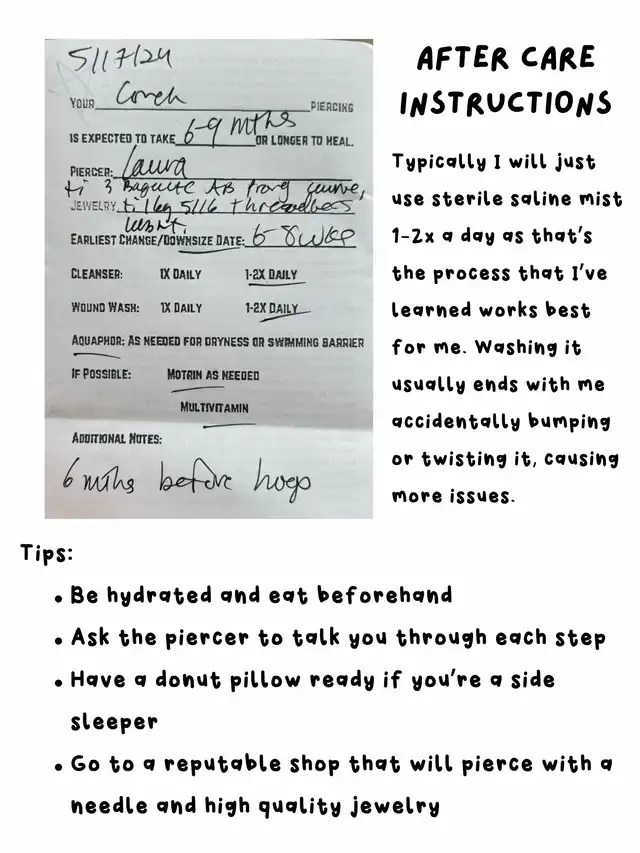 5/17/24
YOUR Conch PIERCING
IS EXPECTED TO TAKE 6-9 mths OR LONGER TO HEAL.
PIERCER: Laura
ti 3 Baguette AB Prong curve,
JEWELRY: ti 16g 5/16 threadless
EARLIEST CHANGE/DOWNSIZE DATE: 6-8 wks
CLEANSER: 1X DAILY 1-2X DAILY
WOUND WASH: 1X DAILY 1-2X DAILY
AQUAPHOR: AS NEEDED FOR DRYNESS OR SWIMMING BARRIER
IF POSSIBLE: MOTRIN AS NEEDED
MULTIVITAMIN
ADDITIONAL NOTES:
6 mths before hoop
AFTER CARE
INSTRUCTIONS
Typically I will just
use sterile saline mist
1-2x a day as that's
the process that I've
learned works best
for me. Washing it
usually ends with me
accidentally bumping
or twisting it, causing
more issues.
Tips:
• Be hydrated and eat beforehand
• Ask the piercer to talk you through each step
• Have a donut pillow ready if you're a side
sleeper
• Go to a reputable shop that will pierce with a
needle and high quality jewelry